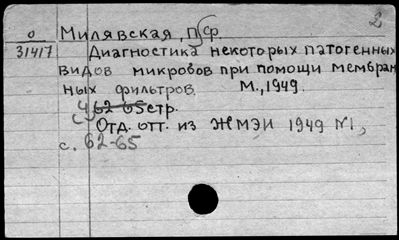 2
о Милявская, П Ф
31417 Диагностика некоторых патогенных
видов микробов при помощи мембран
ных фильтров. М., 1949.
4 62-65 стр.
Отд. отт. из ЖМЭИ 1949 №1,
с. 62-65